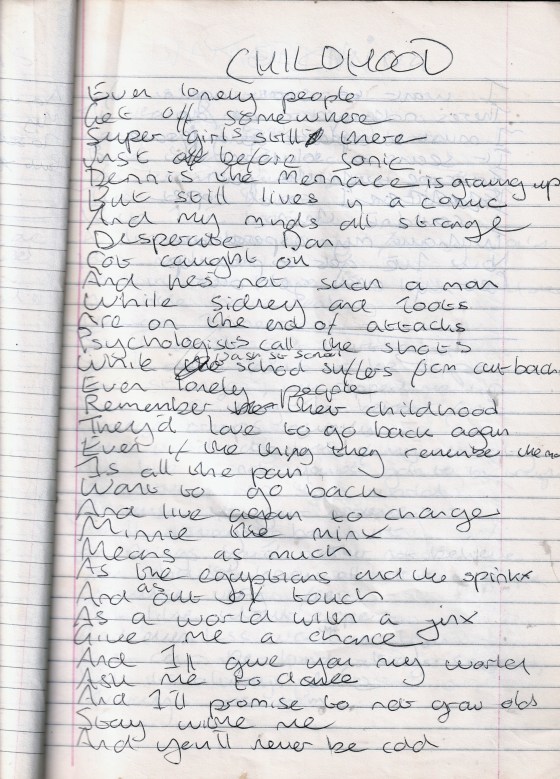 CHILDHOOD
Even lonely people
Get off somewhere
Super girls still there
Just before Sonic
Dennis the Mennace is growing up
But still lives in a comic
And my minds all strange
Desperate Dan
Got caught on
And hes not such a man
While Sidney and Toots
Are on the end of attacks
Psychologists call the shots
While Bash st school suffers from cut backs
Even lonely people
Remember their childhood
They'd love to go back again
Even if the thing they remember the most
Is all the pain
Want to go back
And live again to change
Minnie the minx
Means as much
As the egyptians and the spinkx
And as out of touch
As a world with a jinx
Give me a chance
And I'll give you my world
Ask me to dance
And I'll promise to not grow old
Stay with me
And you'll never be cold